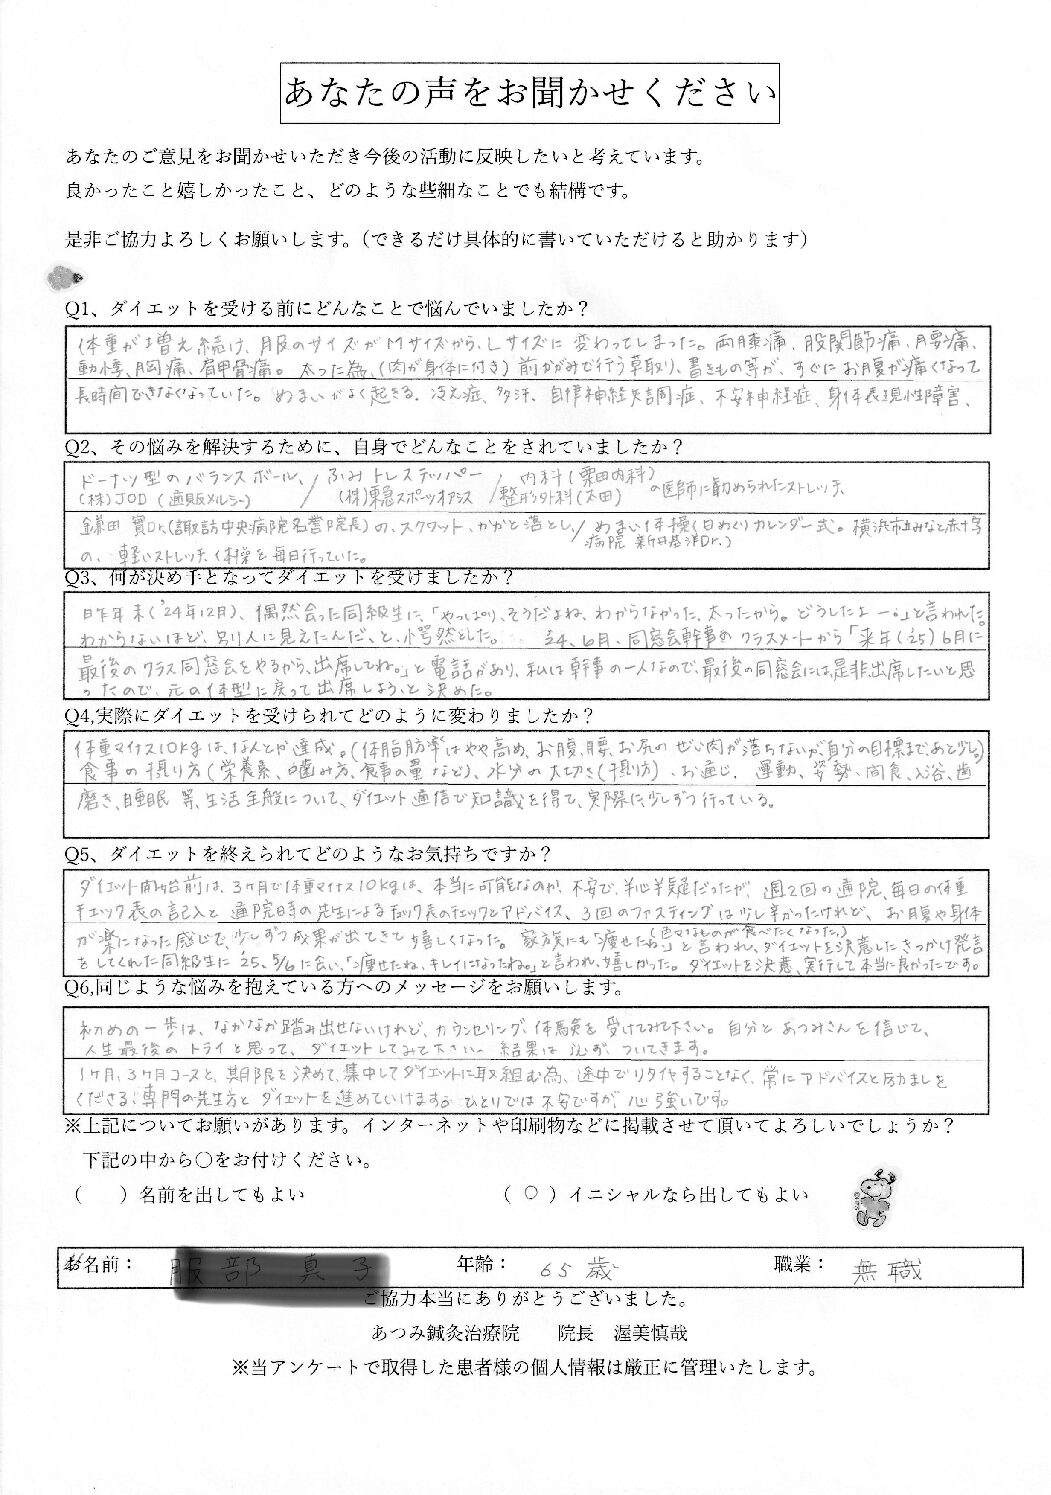 あなたの声をお聞かせください
あなたのご意見をお聞かせいただき今後の活動に反映したいと考えています。
良かったこと嬉しかったこと、どのような些細なことでも結構です。
是非ご協力よろしくお願いします。（できるだけ具体的に書いていただけると助かります）
Q1、ダイエットを受ける前にどんなことで悩んでいましたか？
体重が増え続け、服のサイズがMサイズから、Lサイズに変わってしまった。両膝痛、股関節痛、腰痛、
動悸、胸痛、肩甲骨痛。太った為、(肉が身体に付き) 前かがみで行う草取り、書きもの等が、すぐにお腹が痛くなって
長時間できなくなっていた。めまいがよく起きる。冷え症、多汗、自律神経失調症、不安神経症、身体表現性障害、
Q2、その悩みを解決するために、自身でどんなことをされていましたか？
ドーナツ型のバランスボール、/ ふみトレステッパー / 内科(栗田内科) の医師に勧められたストレッチ、
(株)JOD (通販メルシー) (株)東急スポーツオアシス 整形外科(太田)
鎌田 實Dr.(諏訪中央病院名誉院長)の、スクワット、かがと落とし、/ めまい体操(日めくりカレンダー式。横浜市立みなと赤十字
病院 新井基洋Dr.)
の、軽いストレッチ、体操を毎日行っていた。
Q3、何が決め手となってダイエットを受けましたか？
昨年末('24年12月)、偶然会った同級生に、「やっぱり、そうだよね、わからなかった、太ったから。どうしたよー。」と言われた。
わからないほど、別人に見えたんだ、と、愕然とした。 '24、6月、同窓会幹事のクラスメートから「来年('25)6月に
最後のクラス同窓会をやるから、出席してね。」と電話があり、私は幹事の一人なので、最後の同窓会には、是非出席したいと思
ったので、元の体型に戻って出席しよう、と決めた。
Q4,実際にダイエットを受けられてどのように変わりましたか？
体重マイナス10kgは、なんとか達成。(体脂肪率はやや高め、お腹、腰、お尻のぜい肉が落ちないが、自分の目標まであと少し)
食事の摂り方(栄養素、噛み方、食事の量など)、水分の大切さ(摂り方)、お通じ、運動、姿勢、間食、入浴、歯
磨き、睡眠 等、生活全般について、ダイエット通信で知識を得て、実際に少しずつ行っている。
Q5、ダイエットを終えられてどのようなお気持ちですか？
ダイエット開始前は、3ヶ月で体重マイナス10kgは、本当に可能なのか、不安で、半心半疑だったが、週2回の通院、毎日の体重
チェック表の記入と通院時の先生によるチェック表のチェックとアドバイス、3回のファスティングは少し辛かったけれど、お腹や身体
が楽になった感じで、少しずつ成果が出てきて嬉しくなった。(色々なものが食べたくなった。)家族にも「痩せたね」と言われ、ダイエットを決意したきっかけ発言
をしてくれた同級生に'25、5/6に会い、「痩せたね、キレイになったね。」と言われ、嬉しかった。ダイエットを決意、実行して本当に良かったです。
Q6,同じような悩みを抱えている方へのメッセージをお願いします。
初めの一歩は、なかなか踏み出せないけれど、カウンセリング、体験を受けてみて下さい。自分とあつみさんを信じて、
人生最後のトライと思って、ダイエットしてみて下さい。結果は必ずついてきます。
1ヶ月、3ヶ月コースと、期限を決めて、集中してダイエットに取り組む為、途中でリタイヤすることなく、常にアドバイスと励ましを
くださる、専門の先生方とダイエットを進めていけます。ひとりでは不安ですが、心強いです。
※上記についてお願いがあります。インターネットや印刷物などに掲載させて頂いてよろしいでしょうか？
下記の中から○をお付けください。
（　）名前を出してもよい （○）イニシャルなら出してもよい
お名前： 年齢： 65歳 職業： 無職
ご協力本当にありがとうございました。
あつみ鍼灸治療院　院長　渥美慎哉
※当アンケートで取得した患者様の個人情報は厳正に管理いたします。